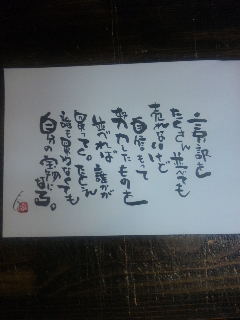 言い訳を
たくさん並べても
売れないけど
自信もって
努力したものを
並べれば 誰かが
買ってく。たとえ
誰も見向きしなくても
自分の宝物になる。